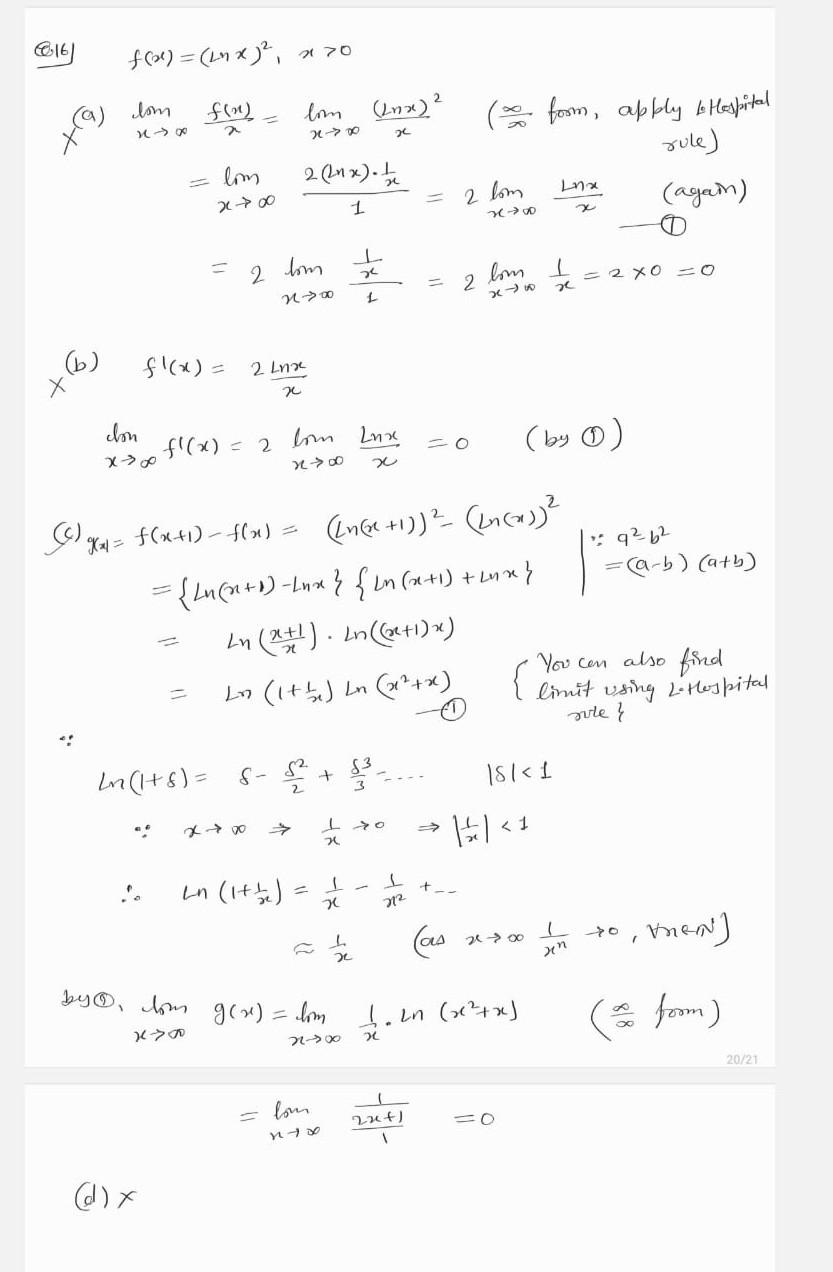 Q16) f(x) = (Ln x)², x > 0
×(a) lim x→∞ f(x)/x = lim x→∞ (Lnx)²/x (∞/∞ form, apply L-Hospital rule)
= lim x→∞ (2(Lnx)·1/x)/1 = 2 lim x→∞ Lnx/x (again) —①
= 2 lim x→∞ (1/x)/1 = 2 lim x→∞ 1/x = 2×0 = 0
×(b) f'(x) = 2Lnx/x
lim x→∞ f'(x) = 2 lim x→∞ Lnx/x = 0 (by ①)
(c) g(x) = f(x+1) - f(x) = (Ln(x+1))² - (Ln(x))²
= {Ln(x+1) - Lnx} {Ln(x+1) + Lnx} | ∵ a²-b² = (a-b) (a+b)
= Ln((x+1)/x) · Ln((x+1)x)
= Ln(1+1/x) Ln(x²+x) —① {You can also find limit using L-Hospital rule}
∵
Ln(1+δ) = δ - δ²/2 + δ³/3 - .... |δ| < 1
∵ x→∞ ⇒ 1/x →0 ⇒ |1/x| < 1
∴ Ln(1+1/x) = 1/x - 1/x² + --
≈ 1/x (as x→∞ 1/xⁿ →0, ∀n∈N]
by ①, lim x→∞ g(x) = lim x→∞ 1/x · Ln(x²+x) (∞/∞ form)
20/21
= lim x→∞ (1/(2x+1))/1 = 0
(d) ×